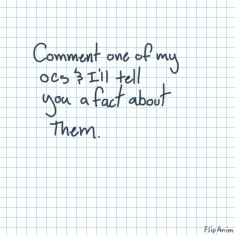 Comment one of my
ocs & I'll tell
you a fact about
Them.
FlipAnim